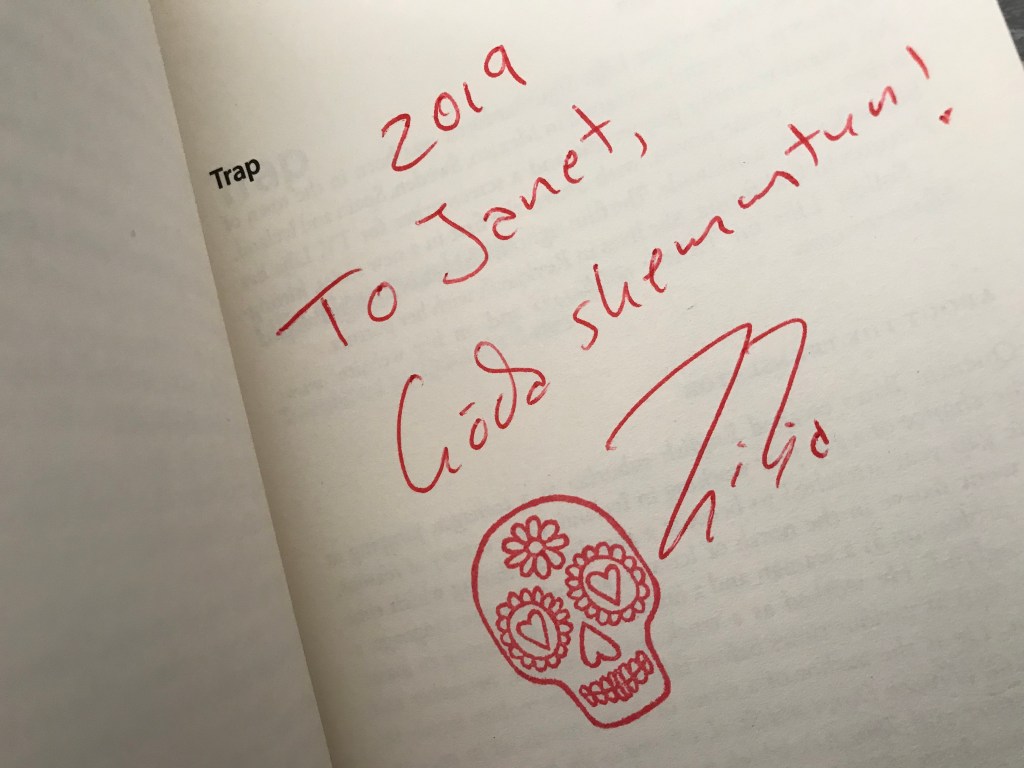 Trap
2019
To Janet,
Góða skemmtun!
Lilja